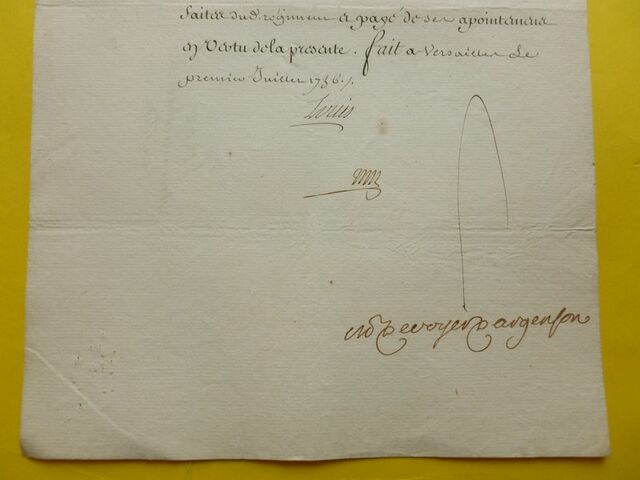 faites dud. régiment et payé de ses apointemens
en Vertu de la presente. fait a Versailles Le
premier Juillet 1756./.
Louis
M De voyer D'argenson